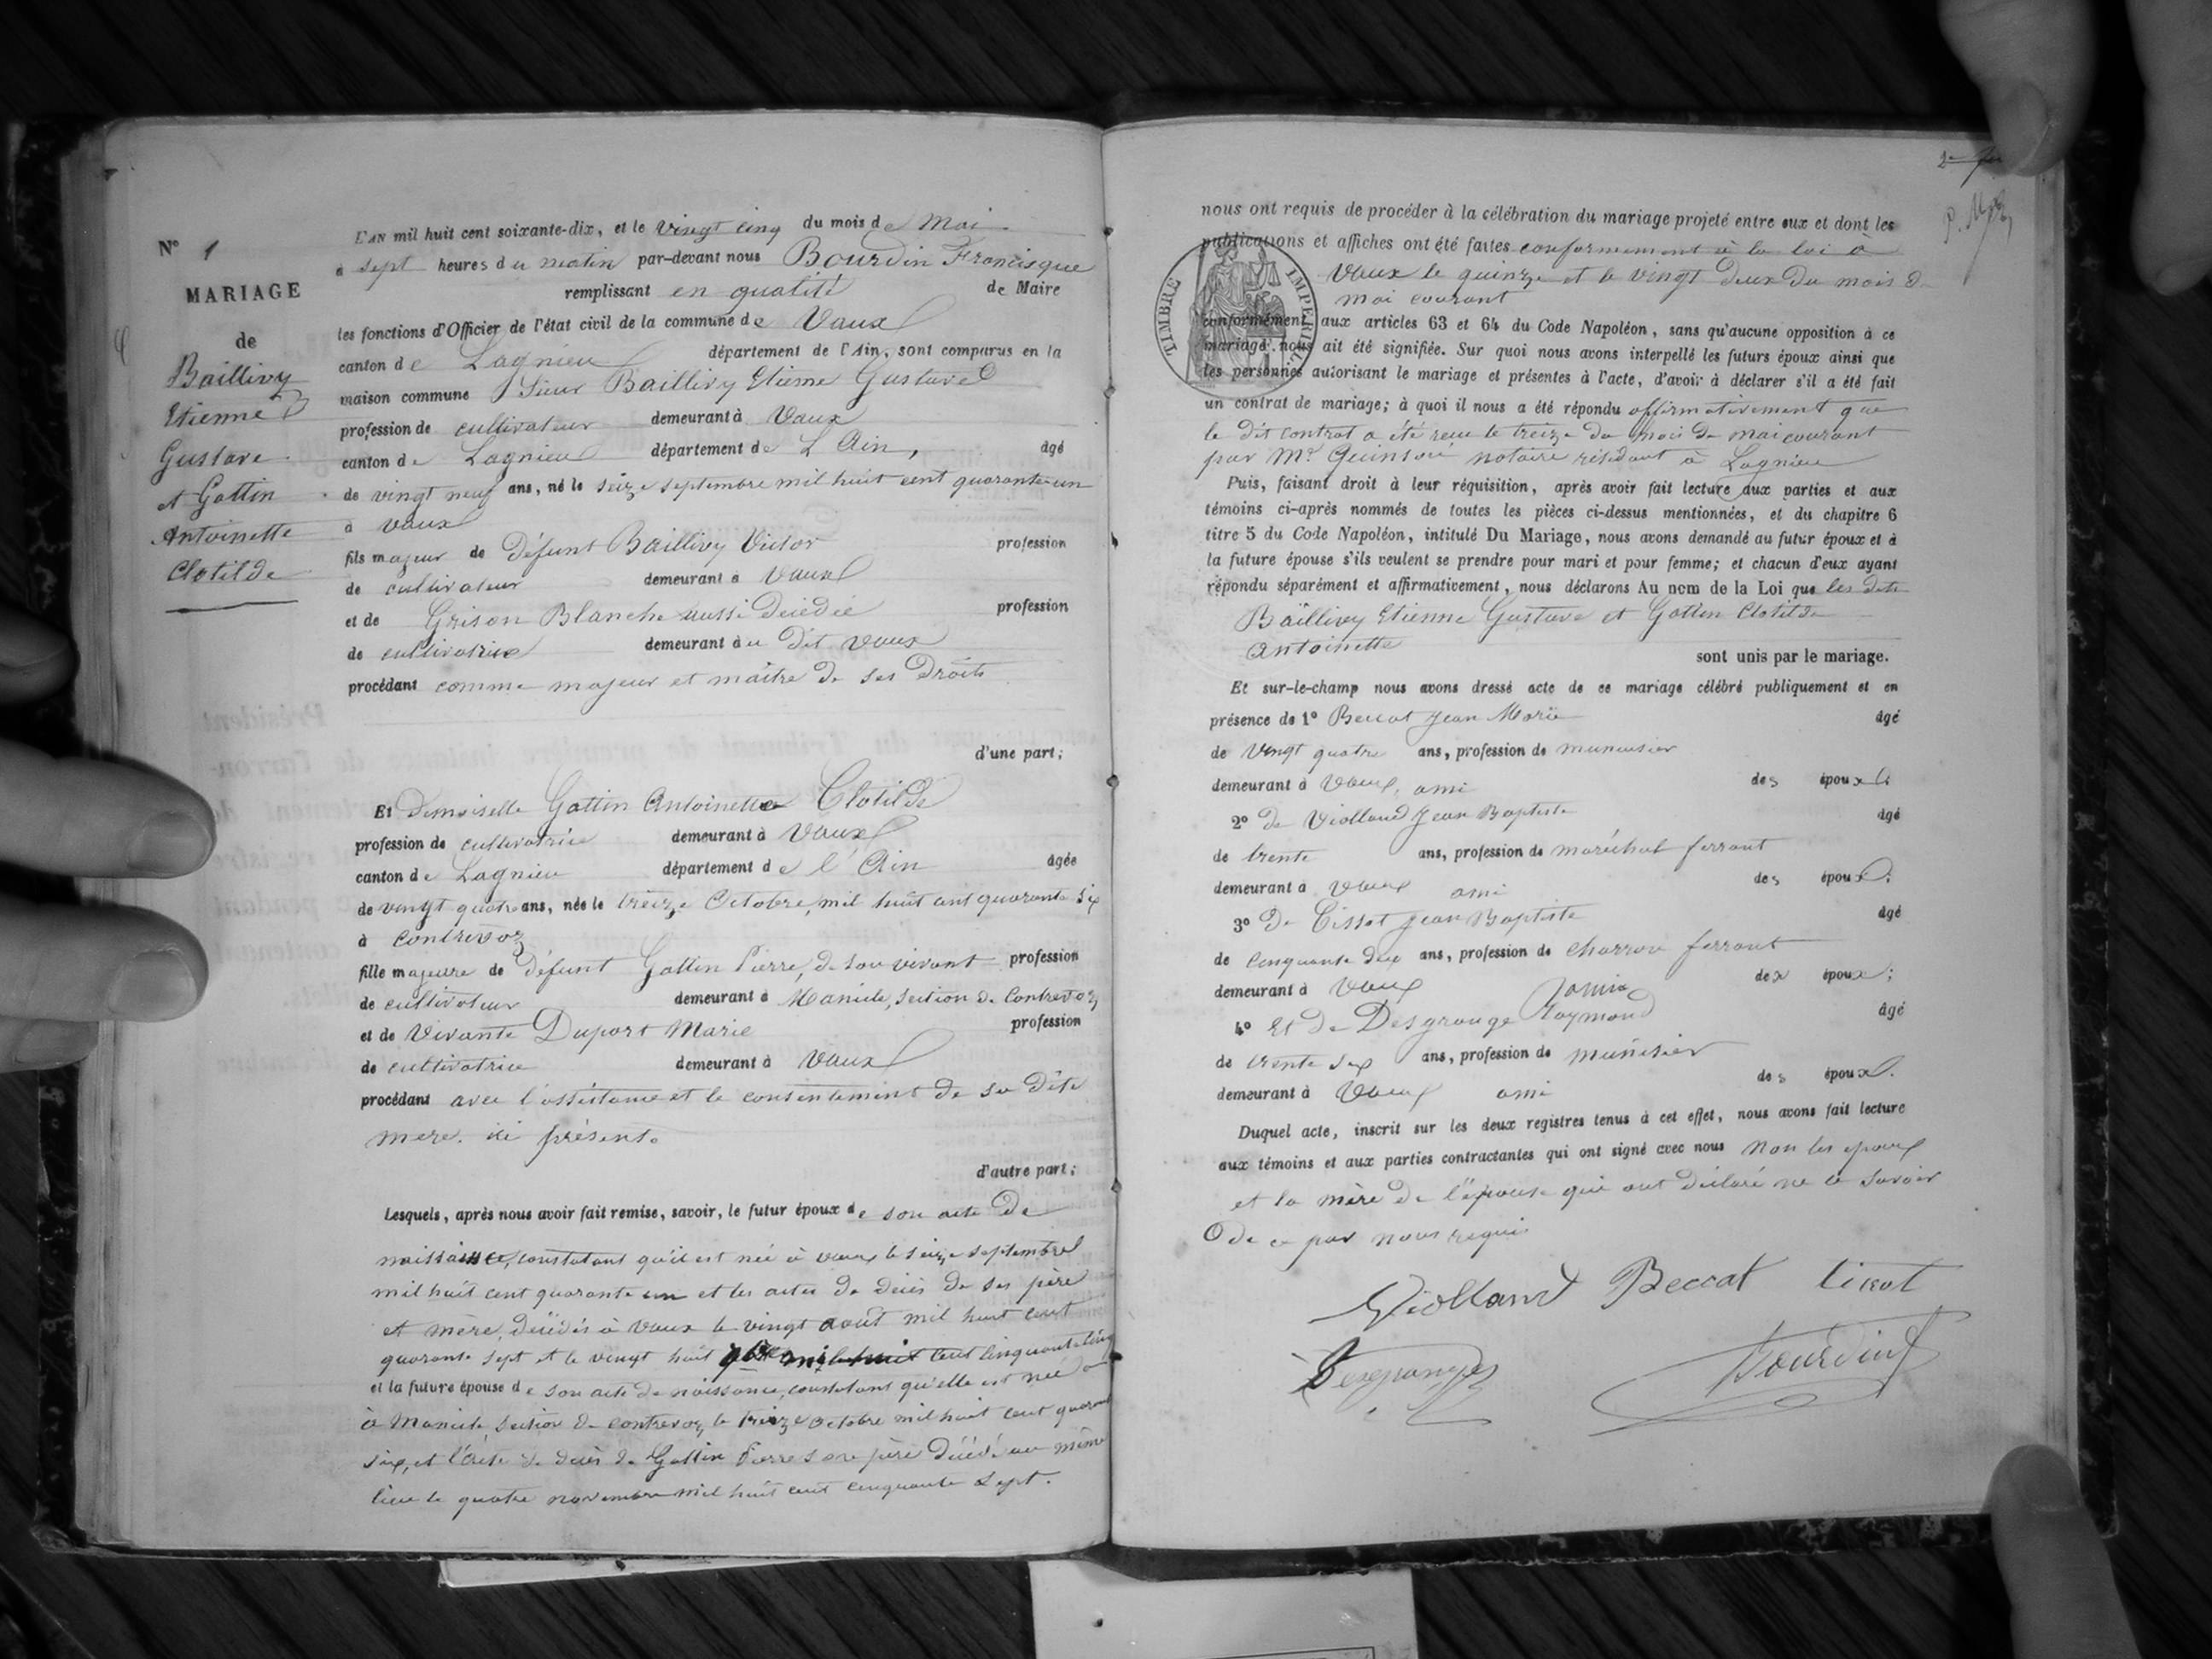 N° 1
MARIAGE
de
Baillivy
Etienne
Gustave
et Gottin
Antoinette
Clotilde
L'AN mil huit cent soixante-dix, et le vingt cinq du mois de Mai
à sept heures du matin par-devant nous Bourdin Francisque
remplissant en qualité de Maire
les fonctions d'Officier de l'état civil de la commune de Vaux
canton de Lagnieu département de l'Ain, sont comparus en la
maison commune Sieur Baillivy Etienne Gustave
profession de cultivateur demeurant à Vaux
canton de Lagnieu département de L'Ain, âgé
de vingt neuf ans, né le seize septembre mil huit cent quarante un
à vaux
fils majeur de défunt Baillivy Victor profession
de cultivateur demeurant à Vaux
et de Grison Blanche aussi décédée profession
de cultivatrice demeurant à au dit vaux
procédant comme majeur et maître de ses Droits
d'une part;
Et Demoiselle Gottin Antoinette Clotilde
profession de cultivatrice demeurant à Vaux
canton de Lagnieu département de l'Ain âgée
de vingt quatre ans, née le treize Octobre, mil huit cent quarante six
à Contrevoz
fille majeure de défunt Gottin Pierre, de son vivant profession
de cultivateur demeurant à Manicle, section de Contrevoz
et de Vivante Duport Marie profession
de cultivatrice demeurant à Vaux
procédant avec l'assistance et le consentement de sa dite
mère. ici présente
d'autre part;
Lesquels, après nous avoir fait remise, savoir, le futur époux de son acte de
naissance, constatant qu'il est né à vaux le seize septembre
mil huit cent quarante un et les actes de décès de ses père
et mère, décédés à Vaux le vingt août mil huit cent
quarante sept et le vingt huit mil huit cent cinquante cinq
et la future épouse de son acte de naissance, constatant qu'elle est née
à Manicle, section de contrevoz le treize octobre mil huit cent quarante
six, et l'acte de décès de Gottin Pierre son père décédé au même
lieu le quatre novembre mil huit cent cinquante sept.
nous ont requis de procéder à la célébration du mariage projeté entre eux et dont les
publications et affiches ont été faites conformément à la loi à
Vaux le quinze et le vingt deux du mois de
mai courant
TIMBRE IMPERIAL
conformément aux articles 63 et 64 du Code Napoléon, sans qu'aucune opposition à ce
mariage nous ait été signifiée. Sur quoi nous avons interpellé les futurs époux ainsi que
les personnes autorisant le mariage et présentes à l'acte, d'avoir à déclarer s'il a été fait
un contrat de mariage; à quoi il nous a été répondu affirmativement que
le dit contrat a été reçu le treize du mois de mai courant
par Me Quinson notaire résidant à Lagnieu
Puis, faisant droit à leur réquisition, après avoir fait lecture aux parties et aux
témoins ci-après nommés de toutes les pièces ci-dessus mentionnées, et du chapitre 6
titre 5 du Code Napoléon, intitulé Du Mariage, nous avons demandé au futur époux et à
la future épouse s'ils veulent se prendre pour mari et pour femme; et chacun d'eux ayant
répondu séparément et affirmativement, nous déclarons Au nom de la Loi que les dits
Baillivy Etienne Gustave et Gottin Clotilde
Antoinette
sont unis par le mariage.
Et sur-le-champ nous avons dressé acte de ce mariage célébré publiquement et en
présence de 1° Beccat Jean Marie âgé
de vingt quatre ans, profession de menuisier
demeurant à Vaux, ami des époux
2° de Viollaud Jean Baptiste âgé
de trente ans, profession de maréchal ferrant
demeurant à Vaux ami des époux;
3° de Tissot Jean Baptiste âgé
de cinquante deux ans, profession de charron ferrant
demeurant à Vaux ami des époux;
4° et de Desgrange Raymond âgé
de trente six ans, profession de menuisier
demeurant à Vaux ami des époux.
Duquel acte, inscrit sur les deux registres tenus à cet effet, nous avons fait lecture
aux témoins et aux parties contractantes qui ont signé avec nous non les époux
et la mère de l'épouse qui ont déclaré ne le savoir
de ce par nous requis
Violland Beccat tissot
Desgranges Bourdin